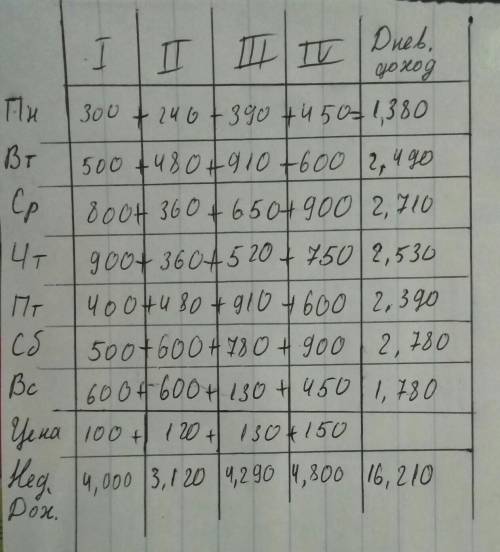 I II III IV Днев. доход
Пн 300 + 240 + 390 + 450 = 1,380
Вт 500 + 480 + 910 + 600 2,490
Ср 800 + 360 + 650 + 900 2,710
Чт 900 + 360 + 520 + 750 2,530
Пт 400 + 480 + 910 + 600 2,390
Сб 500 + 600 + 780 + 900 2,780
Вс 600 + 600 + 130 + 450 1,780
Цена 100 + 120 + 130 + 150
Нед. Дох. 4,000 3,120 4,290 4,800 16,210